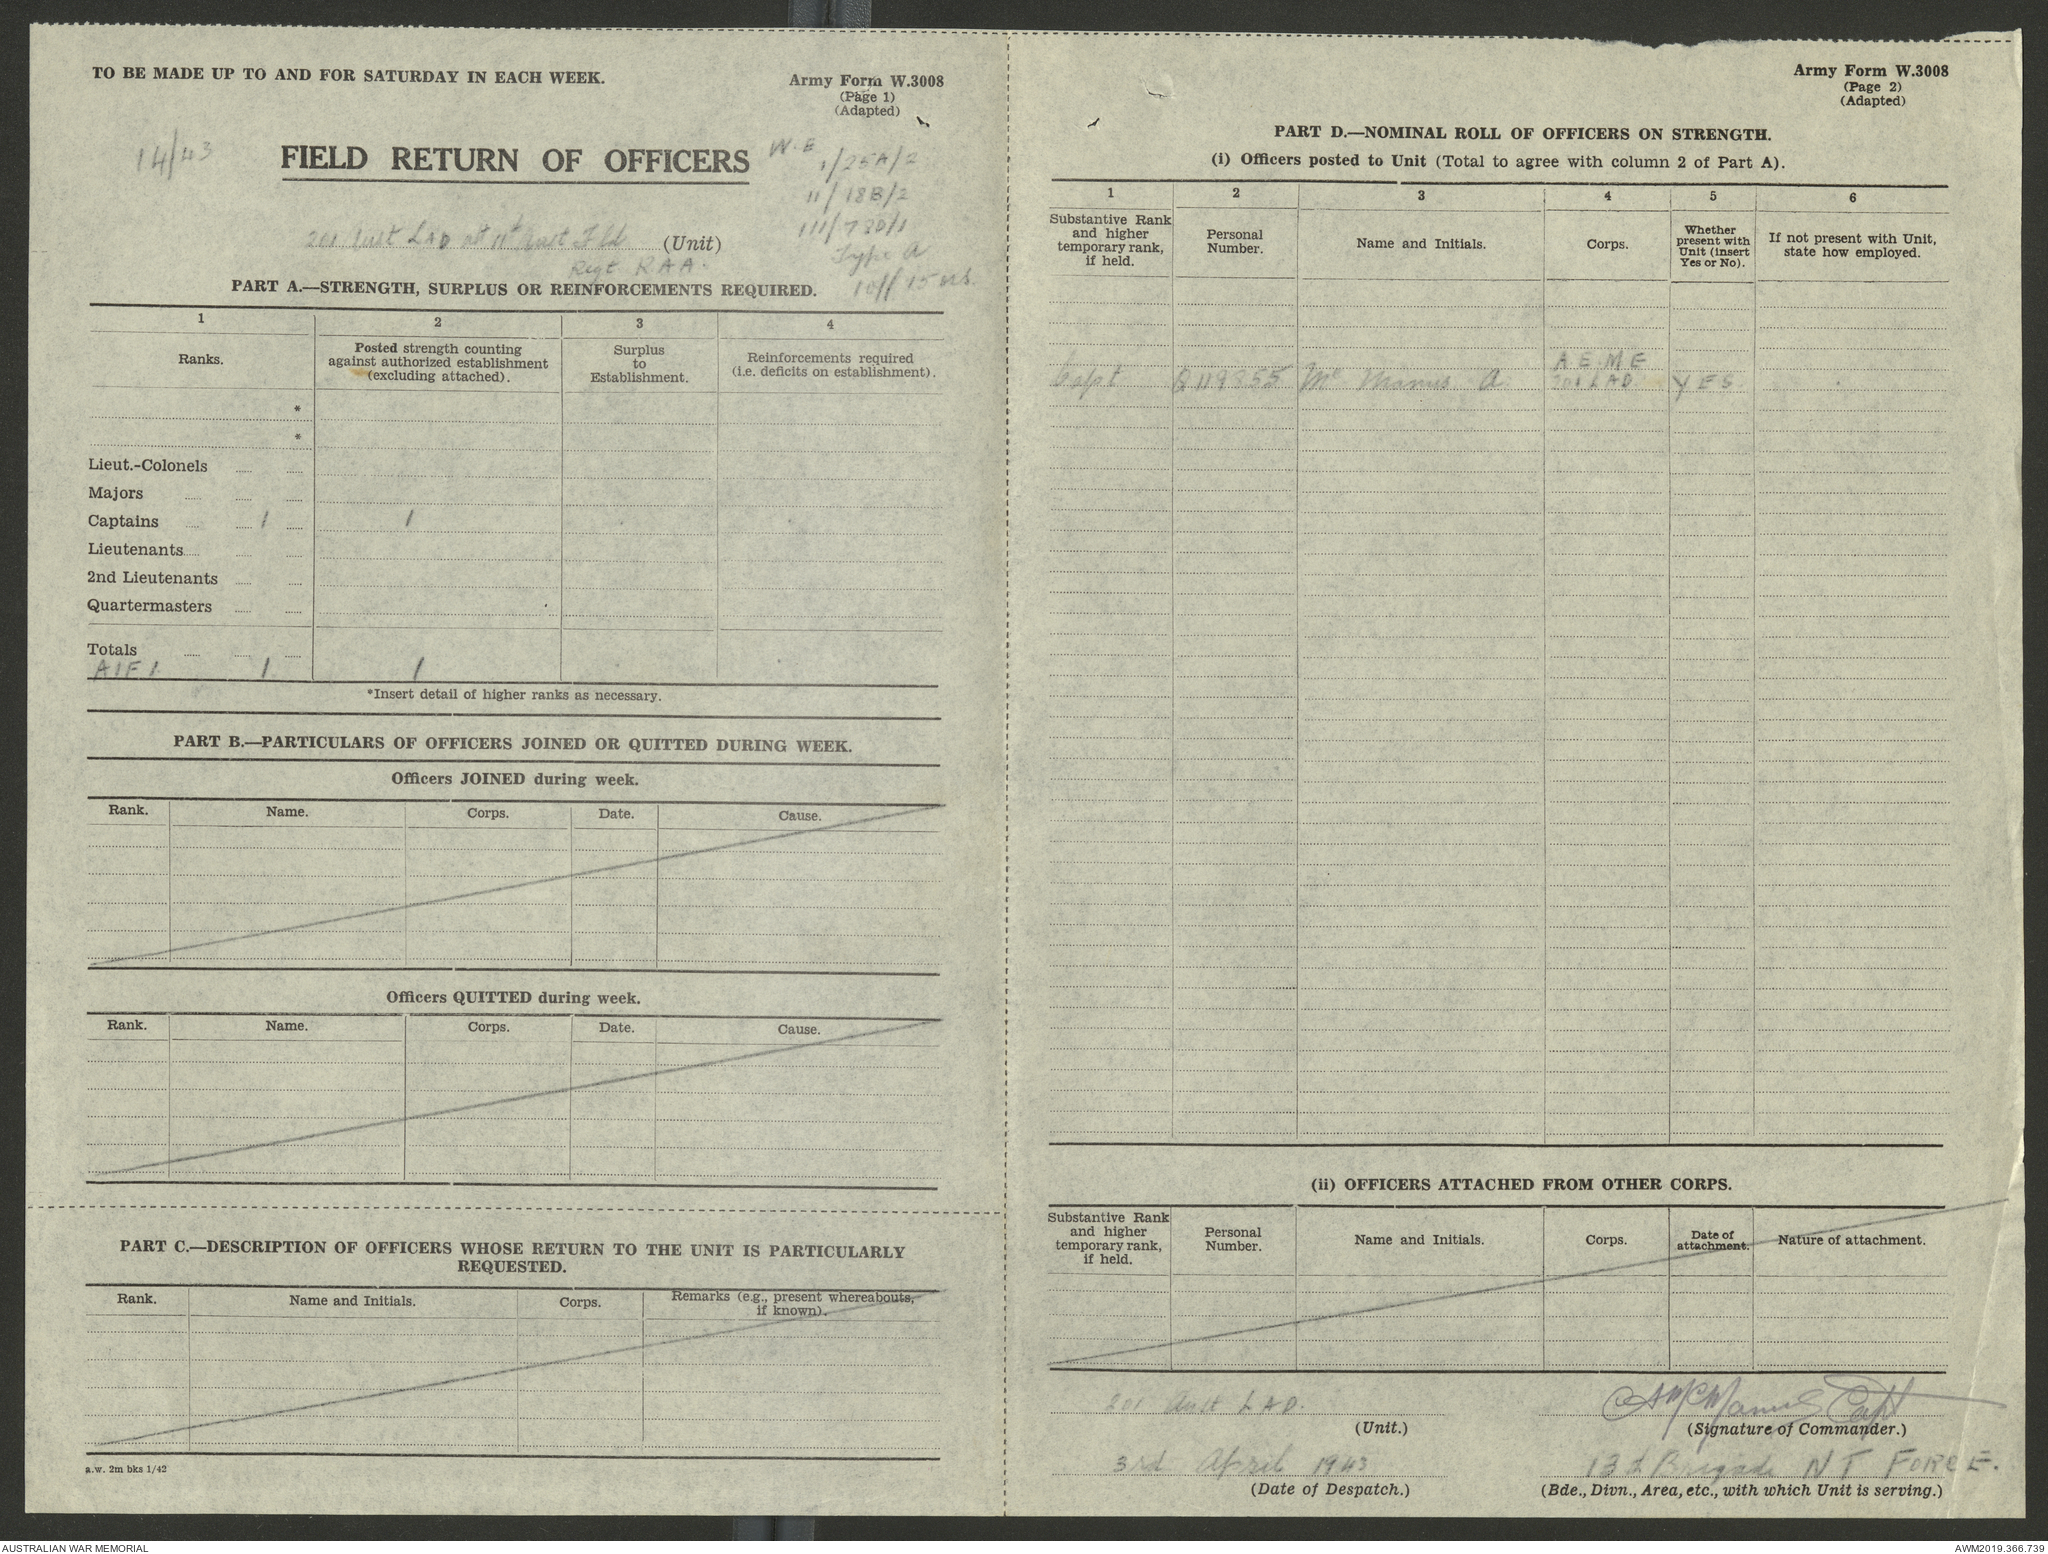 TO BE MADE UP TO AND FOR SATURDAY IN EACH WEEK.
Army Form W.3008
(Page 1)
(Adapted)
14/43
FIELD RETURN OF OFFICERS
W.E
1/25A/2
11/18B/2
111/730/1
Type A
10// 15
201 Aust LAD att 11th Aust Fld (Unit)
Regt RAA.
PART A.—STRENGTH, SURPLUS OR REINFORCEMENTS REQUIRED.
1 2 3 4
Ranks. Posted strength counting against authorized establishment (excluding attached). Surplus to Establishment. Reinforcements required (i.e. deficits on establishment).
*
*
Lieut.-Colonels
Majors
Captains 1 1
Lieutenants
2nd Lieutenants
Quartermasters
Totals
AIF 1. 1 1
*Insert detail of higher ranks as necessary.
PART B.—PARTICULARS OF OFFICERS JOINED OR QUITTED DURING WEEK.
Officers JOINED during week.
Rank. Name. Corps. Date. Cause.
Officers QUITTED during week.
Rank. Name. Corps. Date. Cause.
PART C.—DESCRIPTION OF OFFICERS WHOSE RETURN TO THE UNIT IS PARTICULARLY
REQUESTED.
Rank. Name and Initials. Corps. Remarks (e.g., present whereabouts, if known).
a.w. 2m bks 1/42
Army Form W.3008
(Page 2)
(Adapted)
PART D.—NOMINAL ROLL OF OFFICERS ON STRENGTH.
(i) Officers posted to Unit (Total to agree with column 2 of Part A).
1 2 3 4 5 6
Substantive Rank and higher temporary rank, if held. Personal Number. Name and Initials. Corps. Whether present with Unit (insert Yes or No). If not present with Unit, state how employed.
A E M E
Capt Q119855 Mc Manus A 201 LAD YES
(ii) OFFICERS ATTACHED FROM OTHER CORPS.
Substantive Rank and higher temporary rank, if held. Personal Number. Name and Initials. Corps. Date of attachment. Nature of attachment.
201 Aust LAD. A McManus Capt
(Unit.) (Signature of Commander.)
3rd April 1943 13th Brigade NT FORCE.
(Date of Despatch.) (Bde., Divn., Area, etc., with which Unit is serving.)
AUSTRALIAN WAR MEMORIAL
AWM2019.366.739